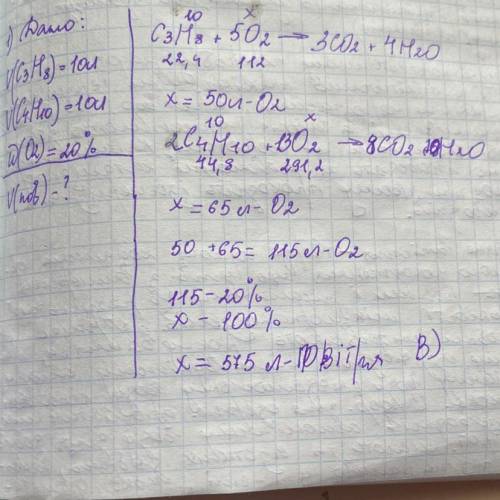 1) Дано:
V(C3H8)=10л
V(C4H10)=10л
φ(O2)=20%
V(пов)-?
10 x
C3H8 + 5O2 → 3CO2 + 4H2O
22,4 112
x = 50л-O2
10 x
2C4H10 + 13O2 → 8CO2 10H2O
44,8 291,2
x = 65 л- O2
50 + 65 = 115 л- O2
115 - 20%
x - 100%
x = 575 л- Повітря В)